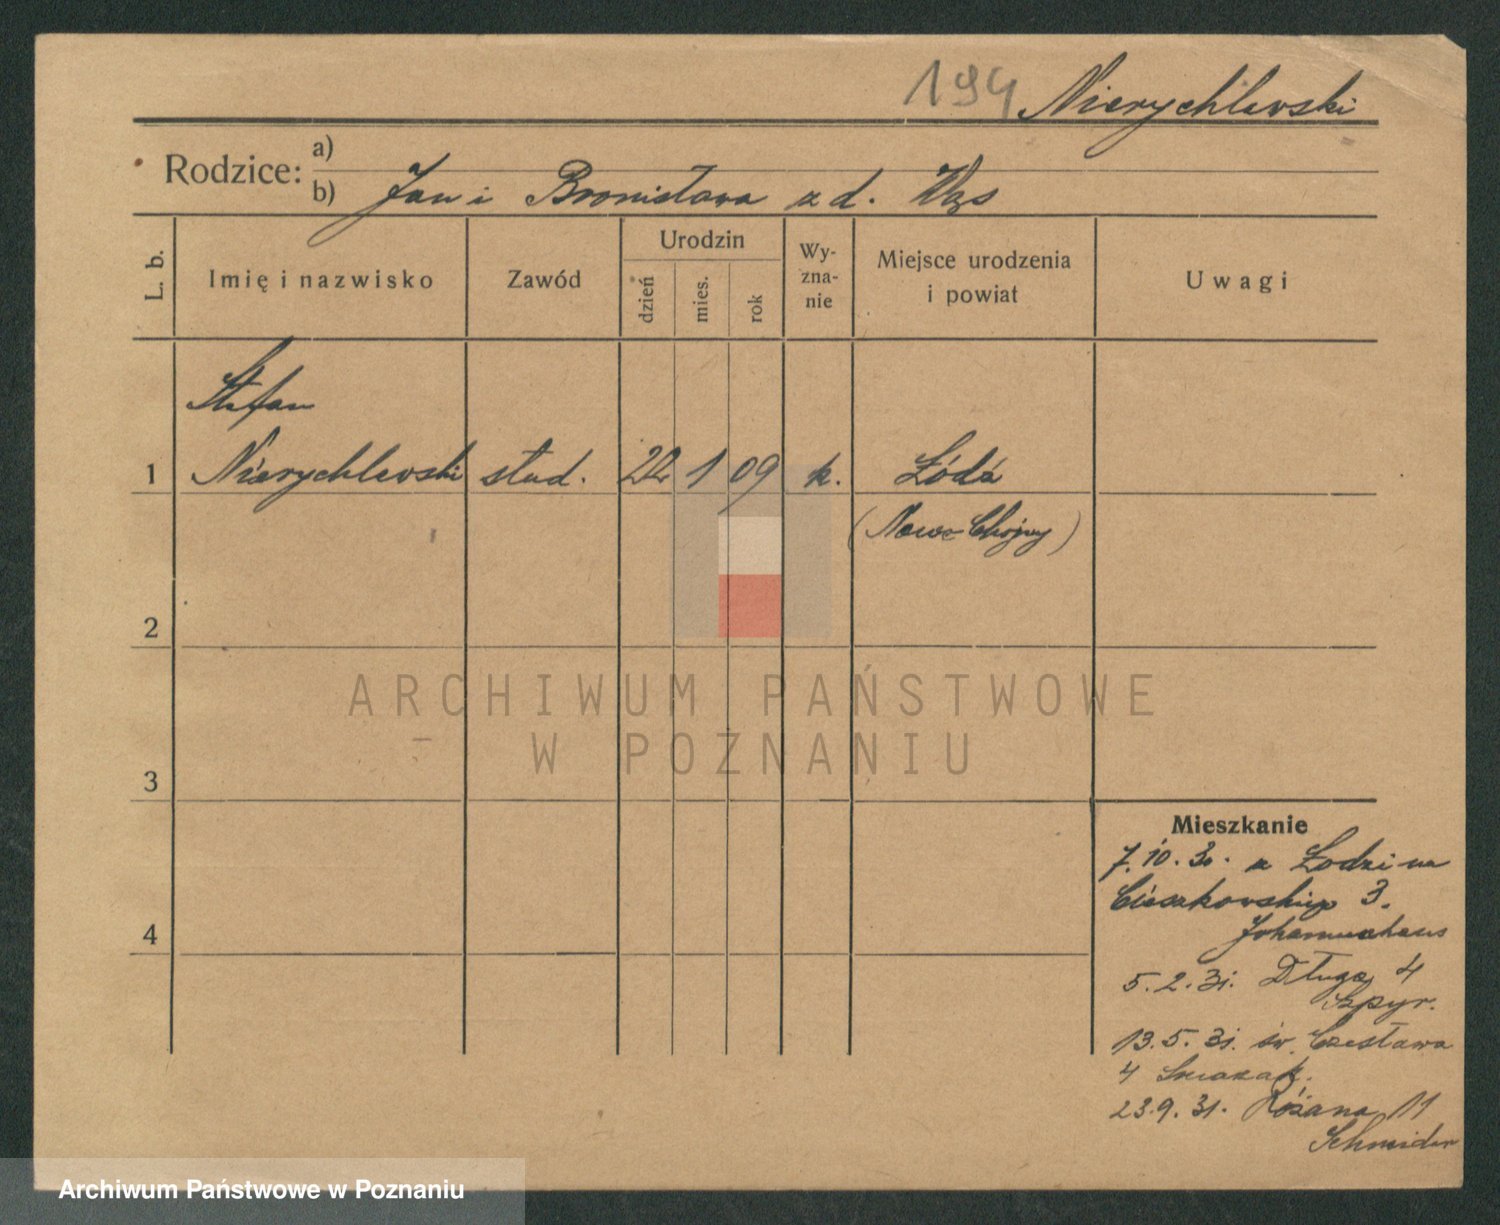 194 Nierychlewski
Rodzice: a)
b) Jan i Bronisława z d. Wąs
L. b.
Imię i nazwisko
Zawód
Urodzin
dzień
mies.
rok
Wy-
zna-
nie
Miejsce urodzenia
i powiat
Uwagi
Stefan
1 Nierychlewski stud. 22 1 09 k. Łódź
(Nowe Chojny)
2
3
4
Mieszkanie
7.10.30. z Łodzi na
Cieszkowskiego 3.
5.2.31. Długa 4
Szpyr.
13.5.31. św. Czesława
4
23.9.31. Różana 11
ARCHIWUM PAŃSTWOWE
W POZNANIU
Archiwum Państwowe w Poznaniu